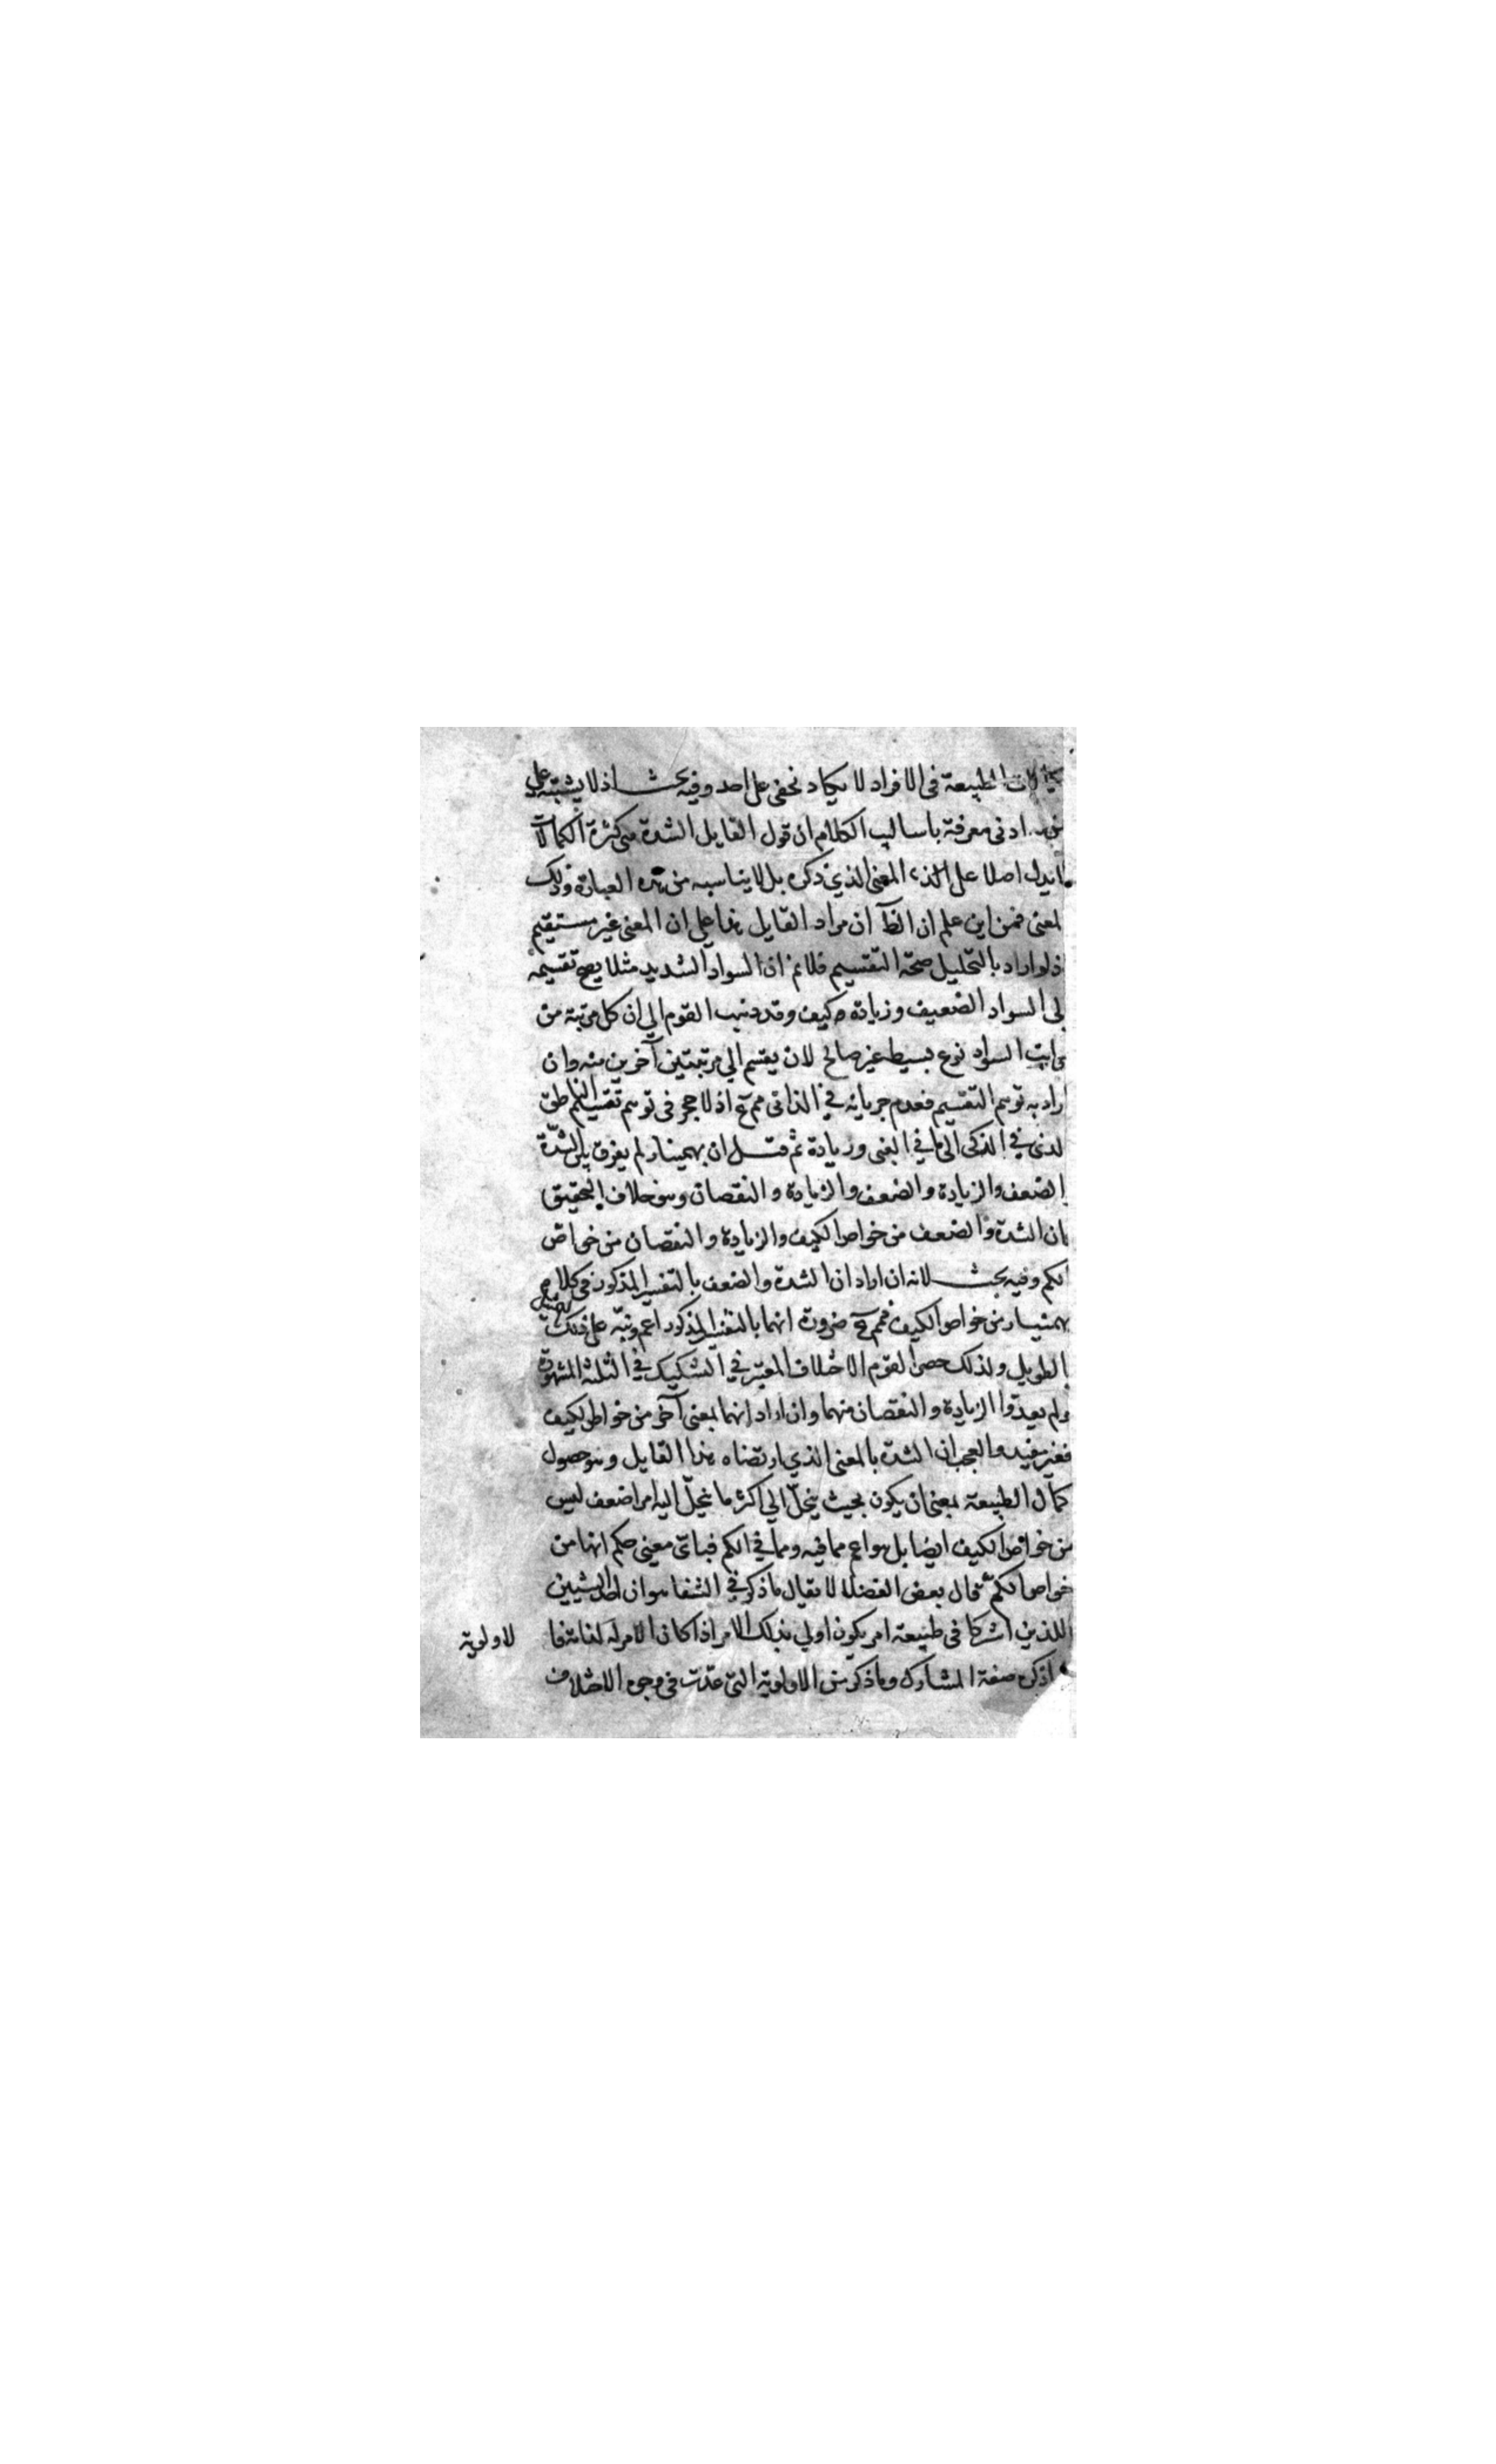 الطبيعة فى الافراد لا يكاد تخفى على احد وفيه بحث اذ لا يشتبه على
من له ادنى معرفة باساليب الكلام ان قول القايل الشدة هى كثرة الكمالات
ما يدل اصلا على المعنى الذي ذكره بل لا يناسبه من هذه العبارة ذلك
لمعنى فمن اين علم ان الظ آن مراد القايل هذا على ان المعنى غير مستقيم
ذ لو اراد بالتحليل صحة التقسيم فلانم ان السواد الشديد مثلا يصح تقسيمه
لى السواد الضعيف وزيادة كيف وقد ذهب القوم الى ان كل مرتبة من
مراتب السواد نوع بسيط غير صالح لان يقسم الي مرتبتين آخرين منه وان
اراد به توهم التقسيم فعدم جريانه في الذاتى مم اذ لا حجر فى توهم تقسيم الناطق
لذى في الذكى الى ما في الغبى وزيادة ثم قيل ان بهمينار لم يفرق بين الشدّة
الضعف والزيادة والضعف والزيادة والنقصان وهو خلاف التحقيق
ان الشدة والضعف من خواص الكيف والزيادة والنقصان من خواص
لكم وفيه بحث لانه ان اراد ان الشدة والضعف بالتفسير المذكور فى كلام
بهمنيار من خواص الكيف فمم ضرورة انهما بالتفسير المذكور اعم ونبّه على ذلك
الطويل ولذلك حصر القوم الاختلاف المعتبر في التشكيك في الثلثة المشهورة
ولم يعدّوا الزيادة والنقصان منهما وان اراد انهما بمعنى آخر من خواص الكيف
فغير مفيد والعجب ان الشدة بالمعنى الذي ارتضاه هذا القايل وهو حصول
كمال الطبيعة بمعنى ان يكون بحيث ينحلّ الي اكثر ما ينحلّ اليه امر اضعف ليس
من خواص الكيف ايضا بل هو اعم مما فيه ومما في الكم فباىّ معنى حكم انها من
خواص الكم ثم قال بعض الفضلاء لا يقال ما ذكر في الشفا هو ان احد الشيئين
اللذين اشتركا فى طبيعة امر يكون اولي بذلك الامر اذا كان الامر له لذاته فا
لاولوية
اذ كره صفة المشارك وما ذكر من الاولوية التى عدّت فى وجوه الاختلاف